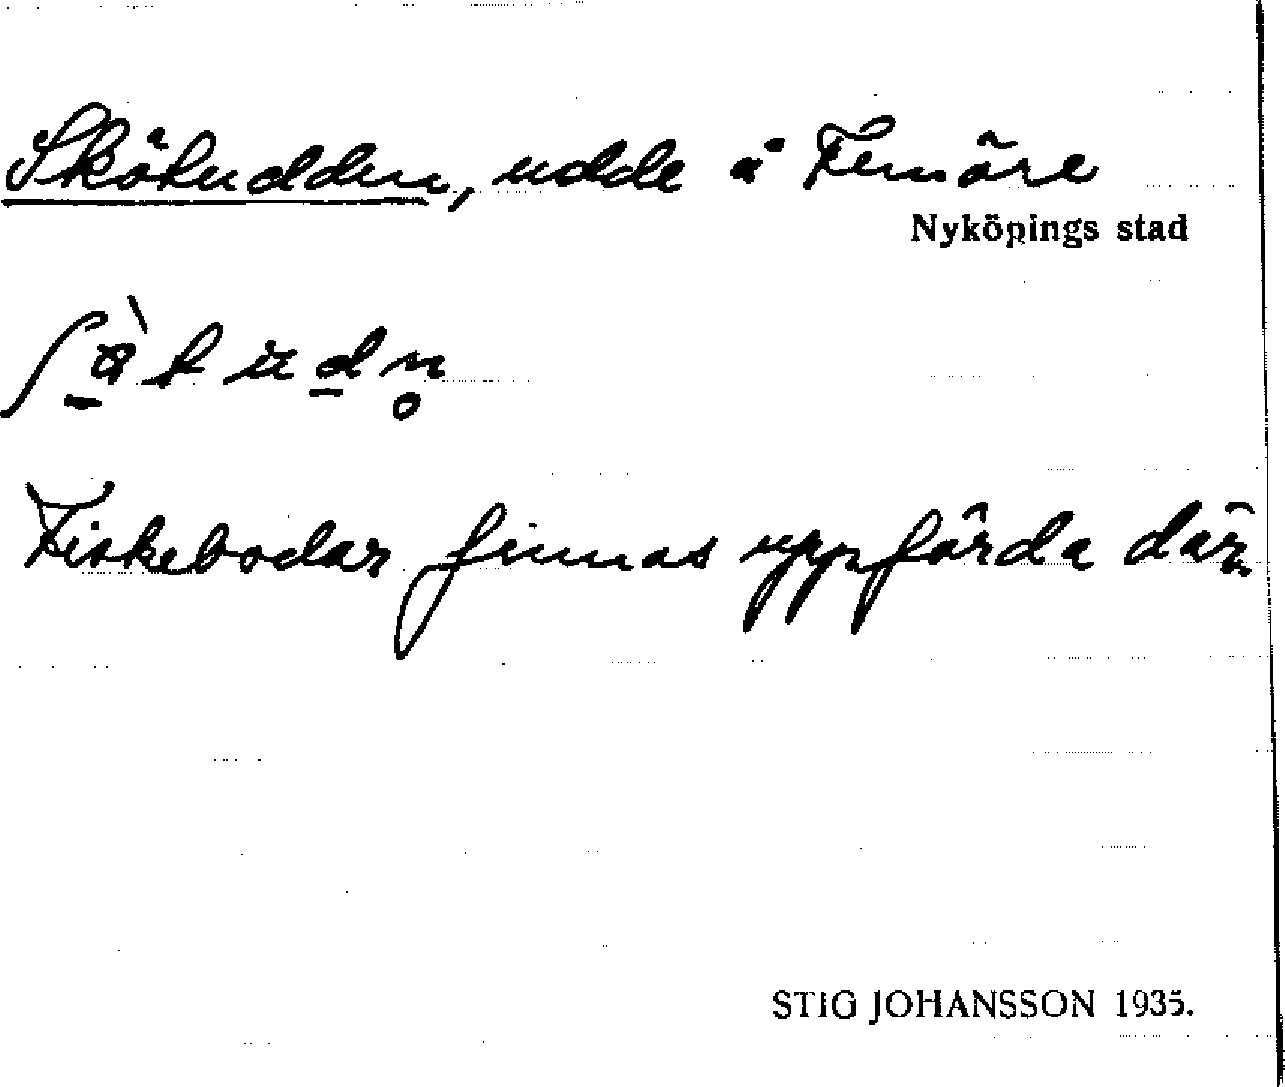 Skötudden, udde å Femöre
Nyköpings stad
Fiskebodar finnas uppförda där.
STIG JOHANSSON 1935.